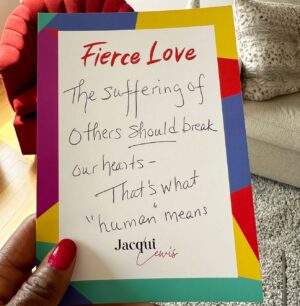 Fierce Love
The suffering of
Others should break
our hearts -
That's what
"human" means
Jacqui
Lewis